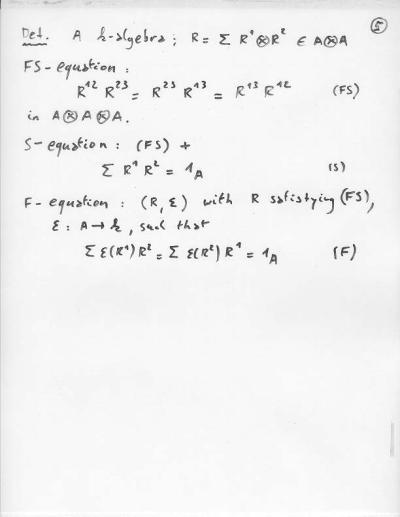 5
Def. A k-algebra; R = Σ R¹⊗R² ∈ A⊗A
FS-equation:
R¹² R²³ = R²³ R¹³ = R¹³ R¹² (FS)
in A⊗A⊗A.
S-equation: (FS) +
Σ R¹ R² = 1_A (S)
F-equation: (R, ε) with R satisfying (FS),
ε : A → k, such that
Σ ε(R¹) R² = Σ ε(R²) R¹ = 1_A (F)